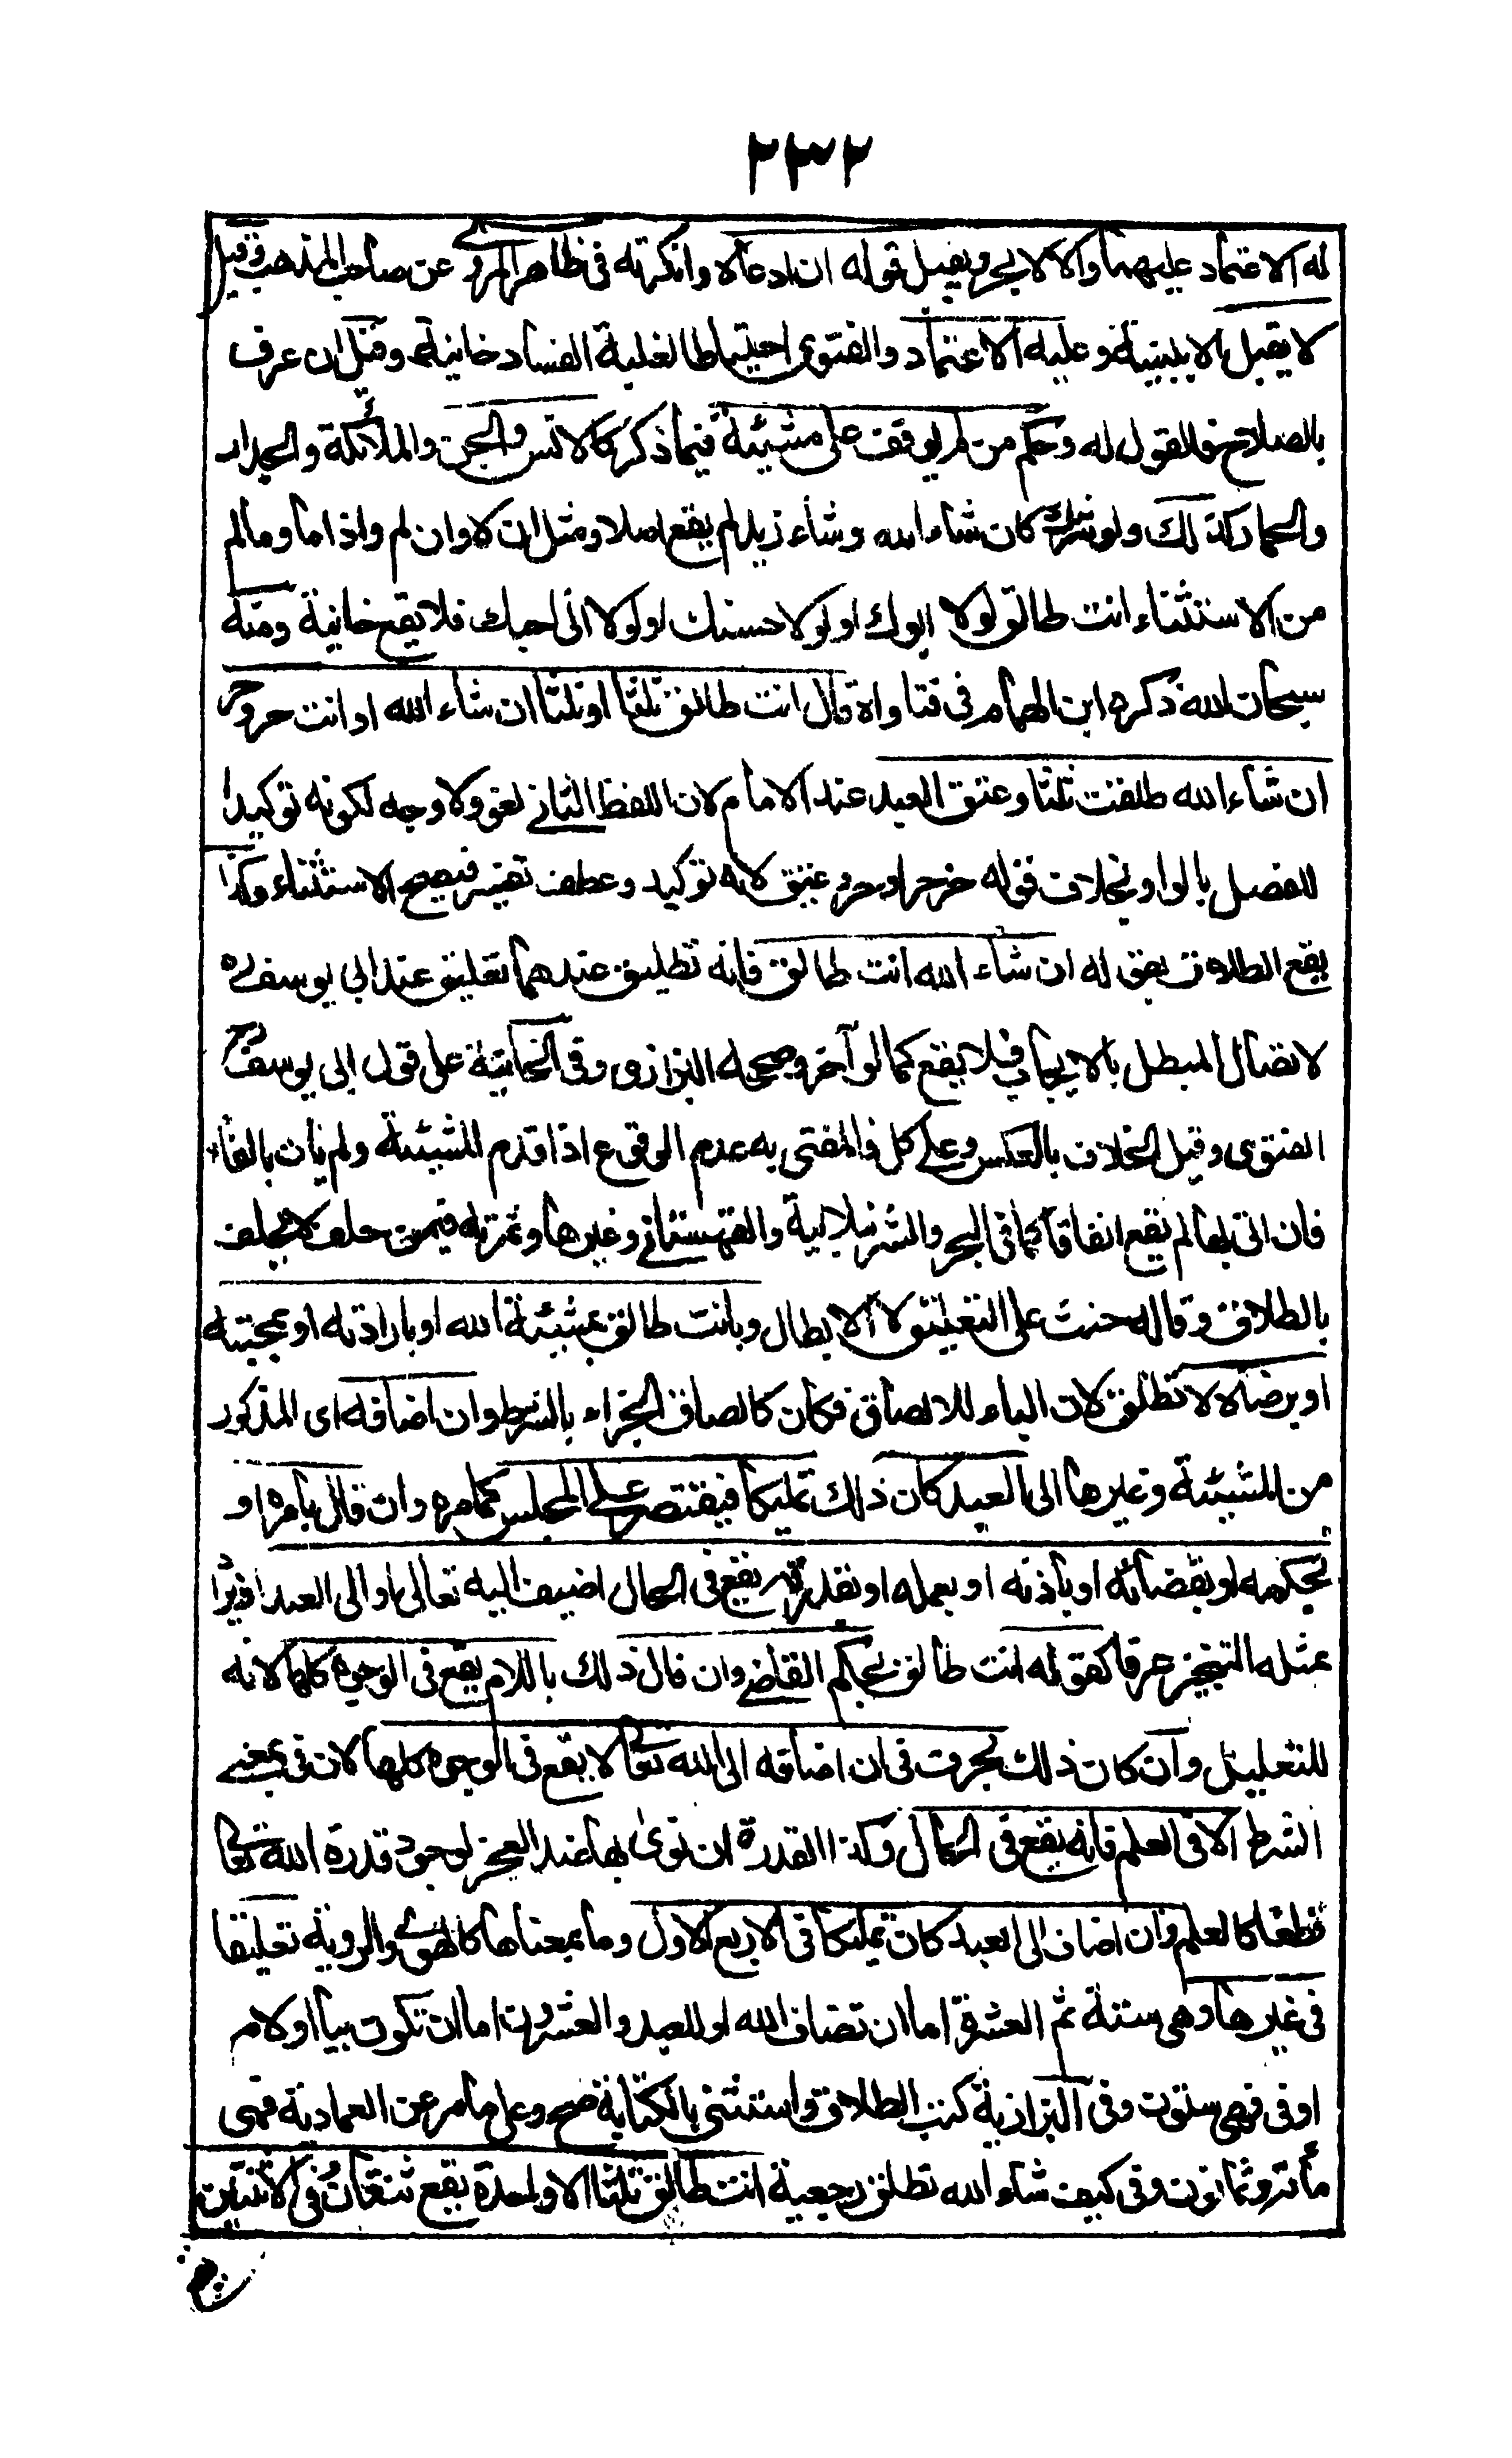 ٢٣٢
له الاعتماد عليهما والا لا بحر ويقبل قوله ان ادعاه وانكرته في ظاهر المروي عن صاحب المذهب وقيل
لا يقبل الا ببينة وعليه الاعتماد والفتوى احتياطا لغلبة الفساد خانية وقيل ان عرف
بالصلاح فالقول له وحكم من لم يوقف على مشيئته فيما ذكر كالانس والجن والملائكة والجدار
والحمار كذلك ولو شرك كان شاء الله وشاء زيد لم يقع اصلا ومثل ان الا وان لم واذا ما وما لم
من الاستثناء انت طالق لولا ابوك او لولا حسنك او لولا انى احبك فلا يقع خانية ومنه
سبحان الله ذكره ابن الهمام في فتاواه قال انت طالق ثلثا او ثلثا ان شاء الله او انت حر وحر
ان شاء الله طلقت ثلثا وعتق العبد عند الامام لان اللفظ الثاني لغو ولا وجه لكونه توكيدا
للفصل بالواو بخلاف قوله حر حر او حر وعتيق لانه توكيد وعطف تفسير فيصح الاستثناء وكذا
يقع الطلاق بقوله ان شاء الله انت طالق فانه تطليق عندهما تعليق عند ابي يوسف
لاتصال المبطل بالايجاب فلا يقع كما لو آخر وصححه البزازى وفي الخانية على قول ابي يوسف
الفتوى وقيل الخلاف بالعكس وعلى كل فالمفتى به عدم الوقوع اذا قدم المشيئة ولم يأت بالفاء
فان اتى بها لم يقع اتفاقا كما في البحر والشرنبلالية والقهستاني وغيرها وثمرته فيمن حلف لا يحلف
بالطلاق وقاله حنث على التعليق لا الابطال وبانت طالق بمشيئة الله او بارادته او بمحبته
او برضاه لا تطلق لان الباء للالصاق فكان كالصاق الجزاء بالشرط وان اضافه اى المذكور
من المشيئة وغيرها الى العبد كان ذلك تمليكا فيقتصر على المجلس كما مر وان قال بامره او
بحكمه او بقضائه او باذنه او بعلمه او بقدرته يقع في الحال اضيف اليه تعالى او الى العبد اذ يراد
بمثله التنجيز عرفا كقوله انت طالق بحكم القاضي وان قال ذلك باللام يقع في الوجوه كلها لانه
للتعليل وان كان ذلك بحرف في ان اضافه الى الله تعا لا يقع في الوجوه كلها لان في بمعنى
الشرط الا في العلم فانه يقع في الحال وكذا القدرة ان نوى بها عند العجز لوجود قدرة الله تعا
قطعا كالعلم وان اضاف الى العبد كان تمليكا في الاربع الاول وما بمعناها كالهوى والروية تعليقا
في غيرها وهي ستة ثم العشرة اما ان تضاف الله او للعبد والعشرون اما ان تكون ببا او لام
او في فهى ستون وفي البزازية كتب الطلاق واستثنى بالكتابة صح وعلى ما مر عن العمادية فهى
مأئة وثمانون وفي كيف شاء الله تطلق رجعية انت طالق ثلثا الا واحدة يقع ثنتان وفي الاثنتين